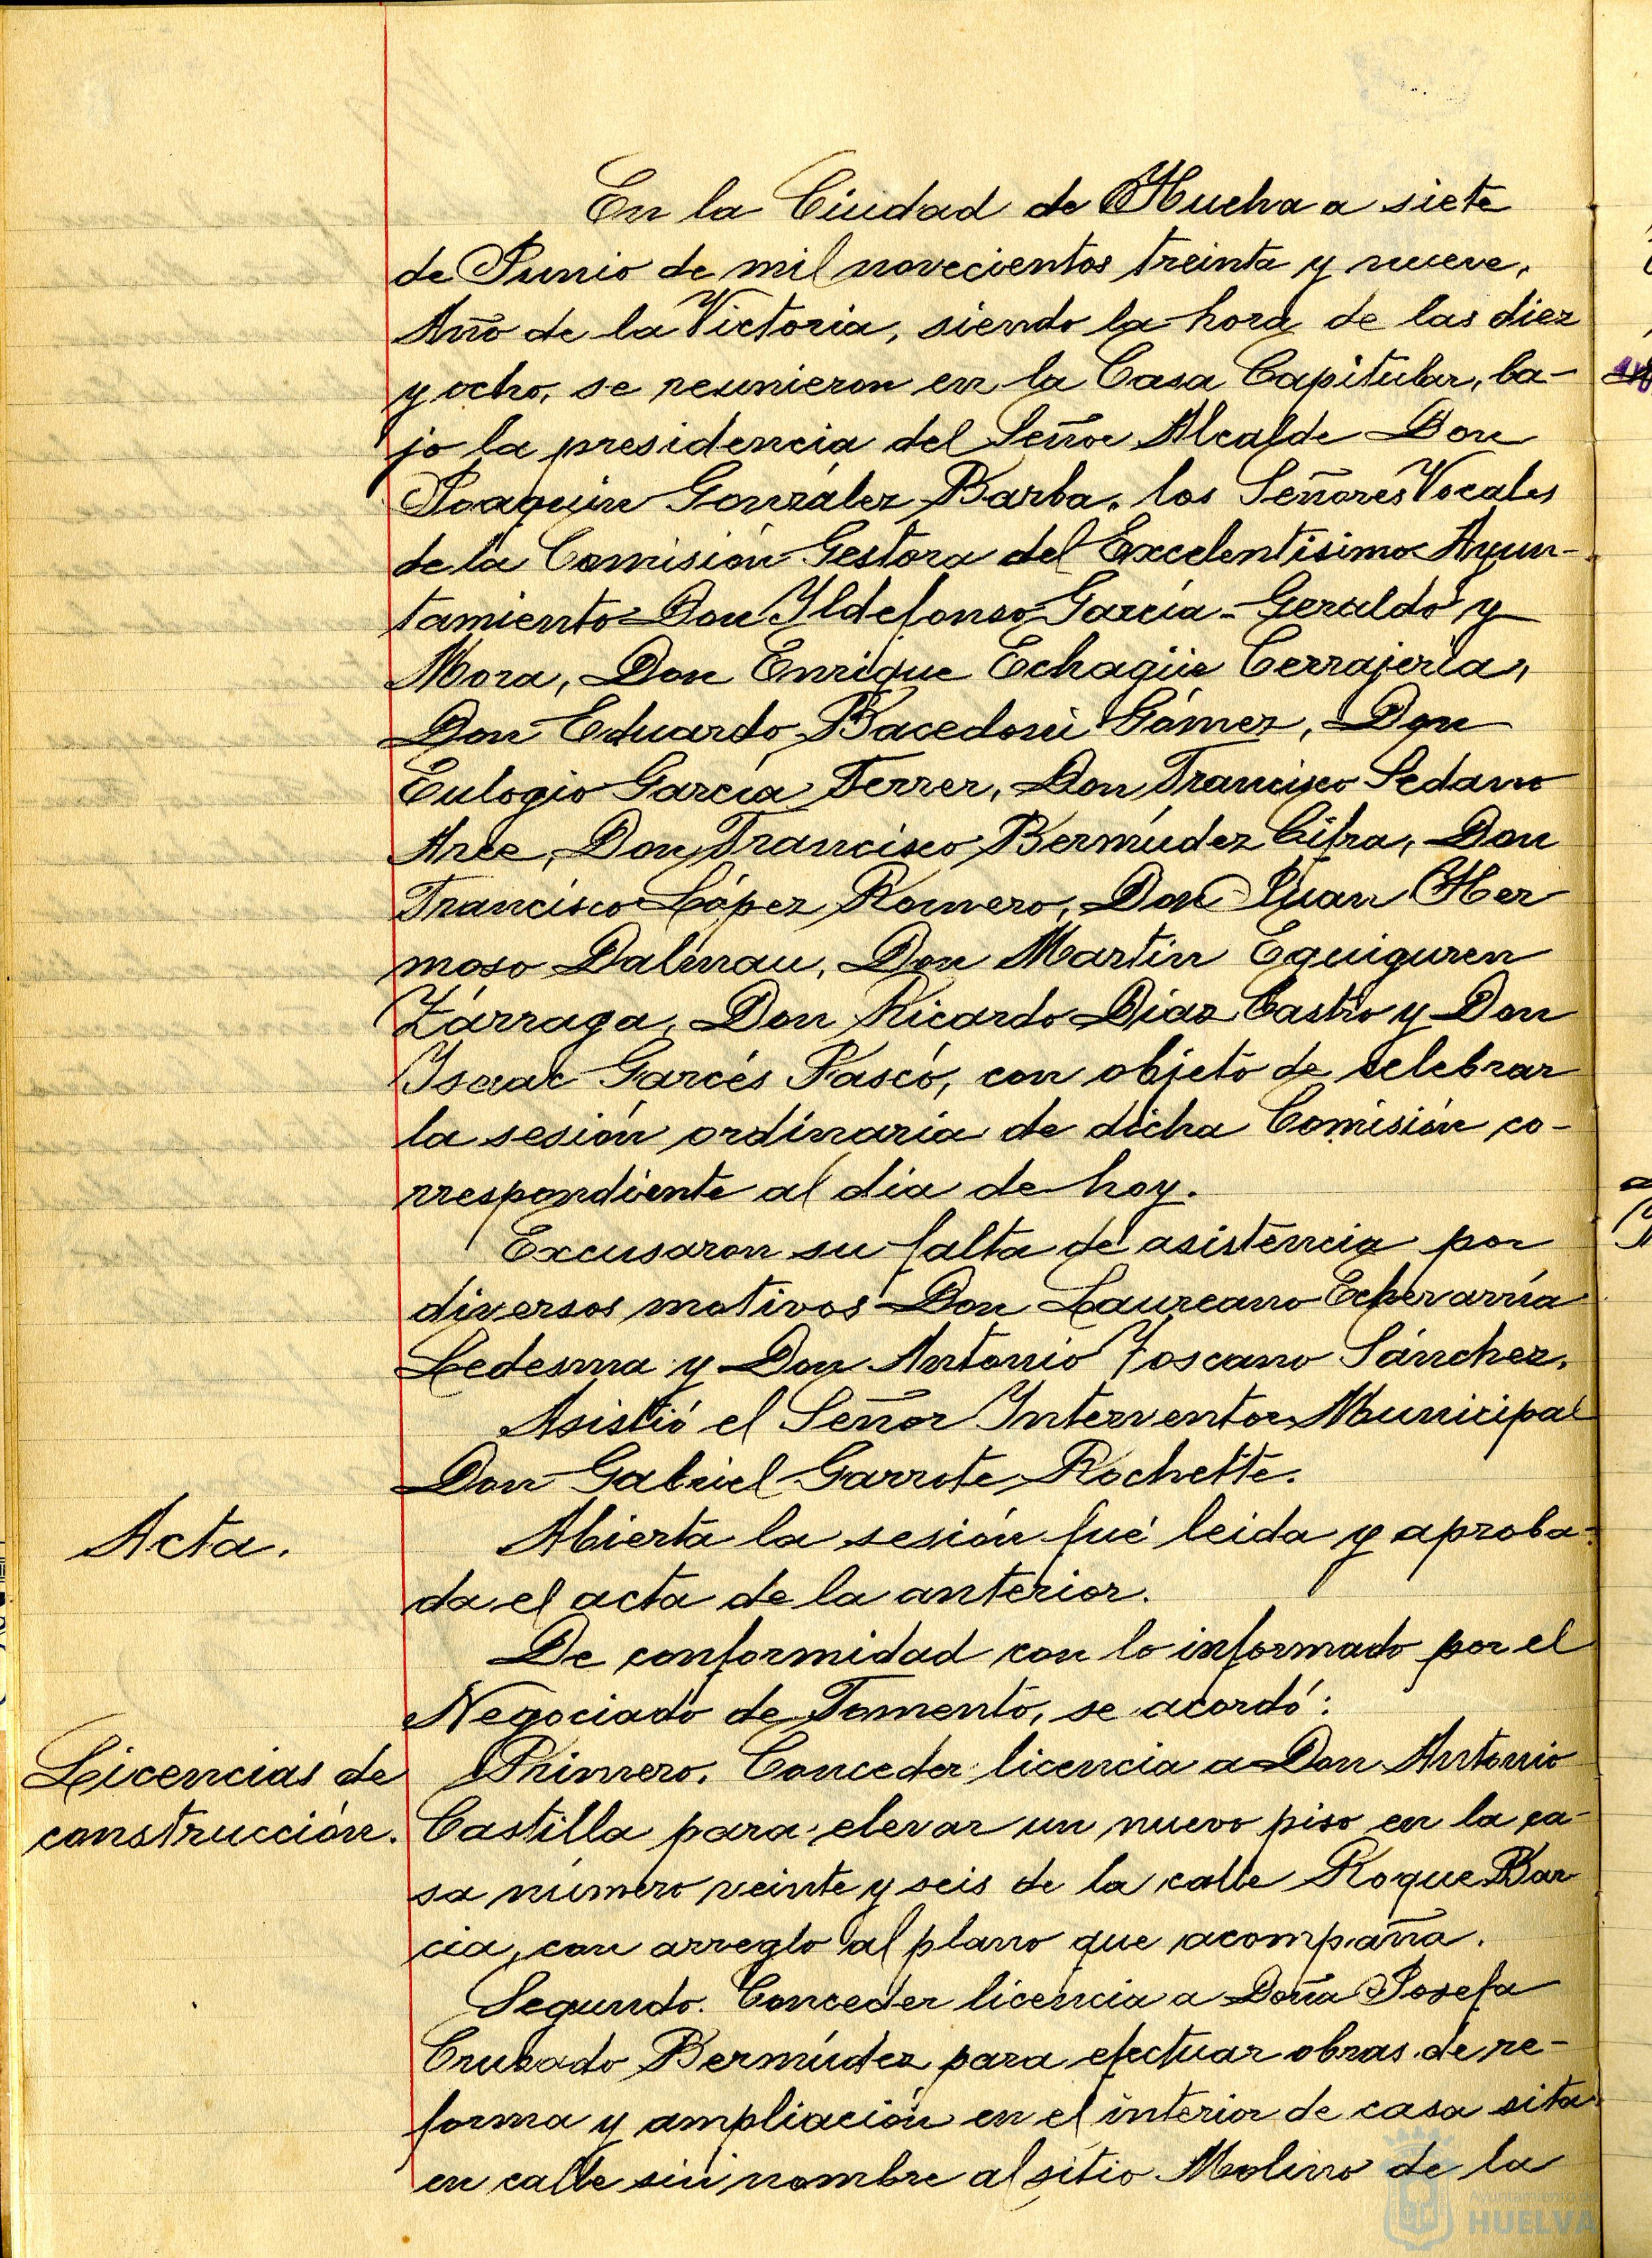 En la Ciudad de Huelva a siete
de Junio de mil novecientos treinta y nueve,
Año de la Victoria, siendo la hora de las diez
y ocho, se reunieron en la Casa Capitular, ba-
jo la presidencia del Señor Alcalde Don
Joaquin González Barba, los Señores Vocales
de la Comisión Gestora del Excelentísimo Ayun-
tamiento Don Ildefonso García-Geraldo y
Mora, Don Enrique Echagüe Cerrajería,
Don Eduardo Bacedoni Gómez, Don
Eulogio García Ferrer, Don Francisco Sedano
Arce, Don Francisco Bermúdez Cifra, Don
Francisco López Romero, Don Juan Her
moso Dalmau, Don Martín Eguiguren
Zárraga, Don Ricardo Díaz Castro y Don
Isaac Garcés Pascó, con objeto de celebrar
la sesión ordinaria de dicha Comisión co-
rrespondiente al dia de hoy.
Excusaron su falta de asistencia por
diversos motivos Don Laureano Echevarría
Ledesma y Don Antonio Toscano Sánchez.
Asistió el Señor Interventor Municipal
Don Gabriel Garrote Rochette.
Acta.
Abierta la sesión fué leida y aproba-
da el acta de la anterior.
De conformidad con lo informado por el
Negociado de Fomento, se acordó:
Licencias de
construcción.
Primero. Conceder licencia a Don Antonio
Castilla para elevar un nuevo piso en la ca-
sa número veinte y seis de la calle Roque Bar
cia, con arreglo al plano que acompaña.
Segundo. Conceder licencia a Doña Josefa
Cruzado Bermúdez para efectuar obras de re-
forma y ampliación en el interior de casa sita
en calle sin nombre al sitio Molino de la
Ayuntamiento de
HUELVA